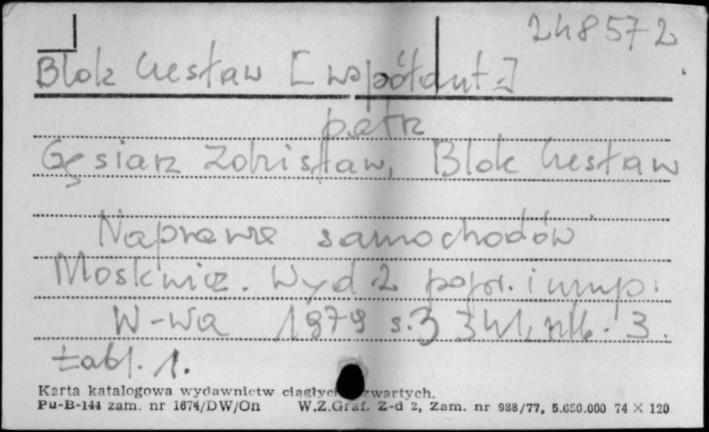 248572
Blok Czesław [współaut.]
patrz
Gęsiarz Zdzisław, Blok Czesław
Naprawa samochodów
Moskwicz. Wyd. 2 popr. i uzup.
W-wa 1979 s. 3
tabl. 1.
Karta katalogowa wydawnictw ciągłych zwartych.
Pu-B-144 zam. nr 1674/DW/On W.Z.Graf. Z-d 2, Zam. nr 988/77, 5.650.000 74 X 120